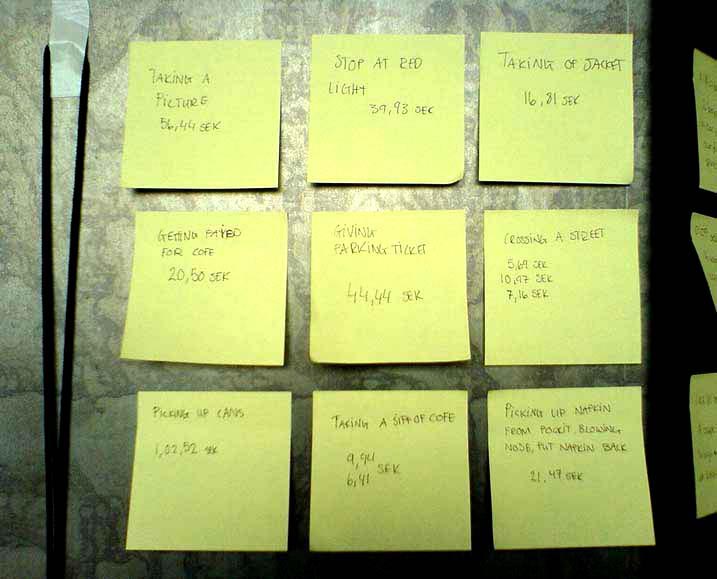 TAKING A
PICTURE
56,44 SEK
STOP AT RED
LIGHT
39,93 SEK
TAKING OF JACKET
16,81 SEK
GETING PAYED
FOR COFE
20,50 SEK
GIVING
PARKING TICKET
44,44 SEK
CROSSING A STREET
5,69 SEK
10,97 SEK
7,16 SEK
PICKING UP CANS
1,02,52 SEK
TAKING A SIPP OF COFE
9,94
6,41 SEK
PICKING UP NAPKIN
FROM POCKIT, BLOWING
NOSE, PUT NAPKIN BACK
21,47 SEK